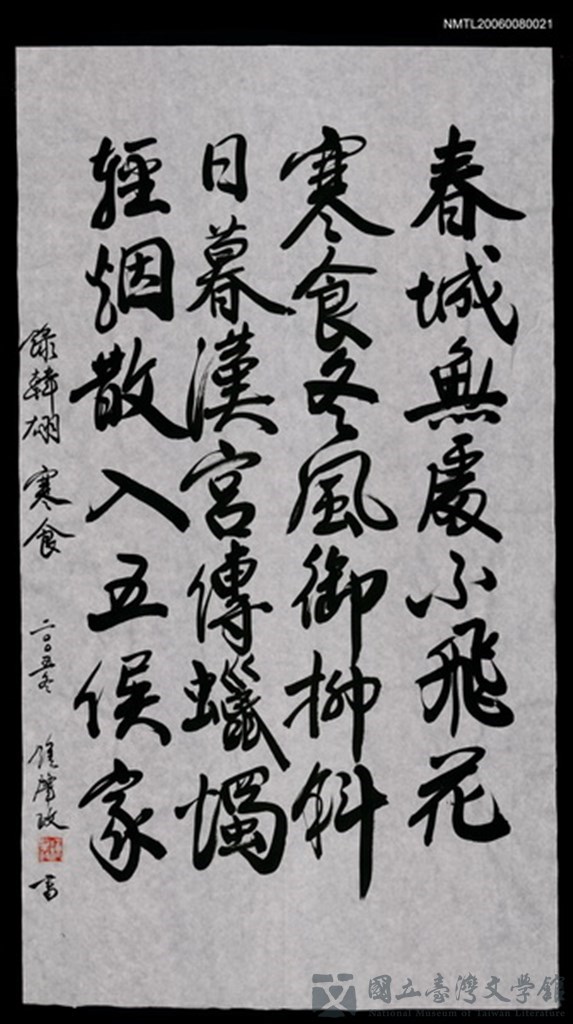 NMTL20060080021
春城無處不飛花
寒食冬風御柳斜
日暮漢宮傳蠟燭
輕烟散入五侯家
錄韓翃 寒食 二〇〇五冬
國立臺灣文學館
National Museum of Taiwan Literature